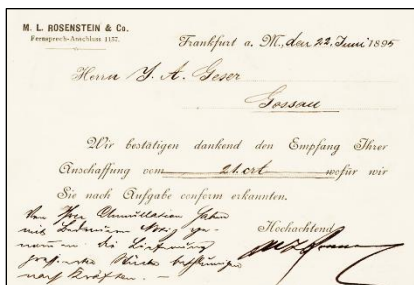 M. L. ROSENSTEIN & Co.
Fernsprech-Anschluss 1157.
Frankfurt a. M., den 22. Juni 1895
Herrn J. A. Geser
Gossau
Wir bestätigen dankend den Empfang Ihrer
Anschaffung vom 21. crt wofür wir
Sie nach Aufgabe conform erkannten.
Von Ihrer Annullation haben
mit Bedauern Notiz ge-
nommen die Lieferung
Hochachtend
nach Kräften. —